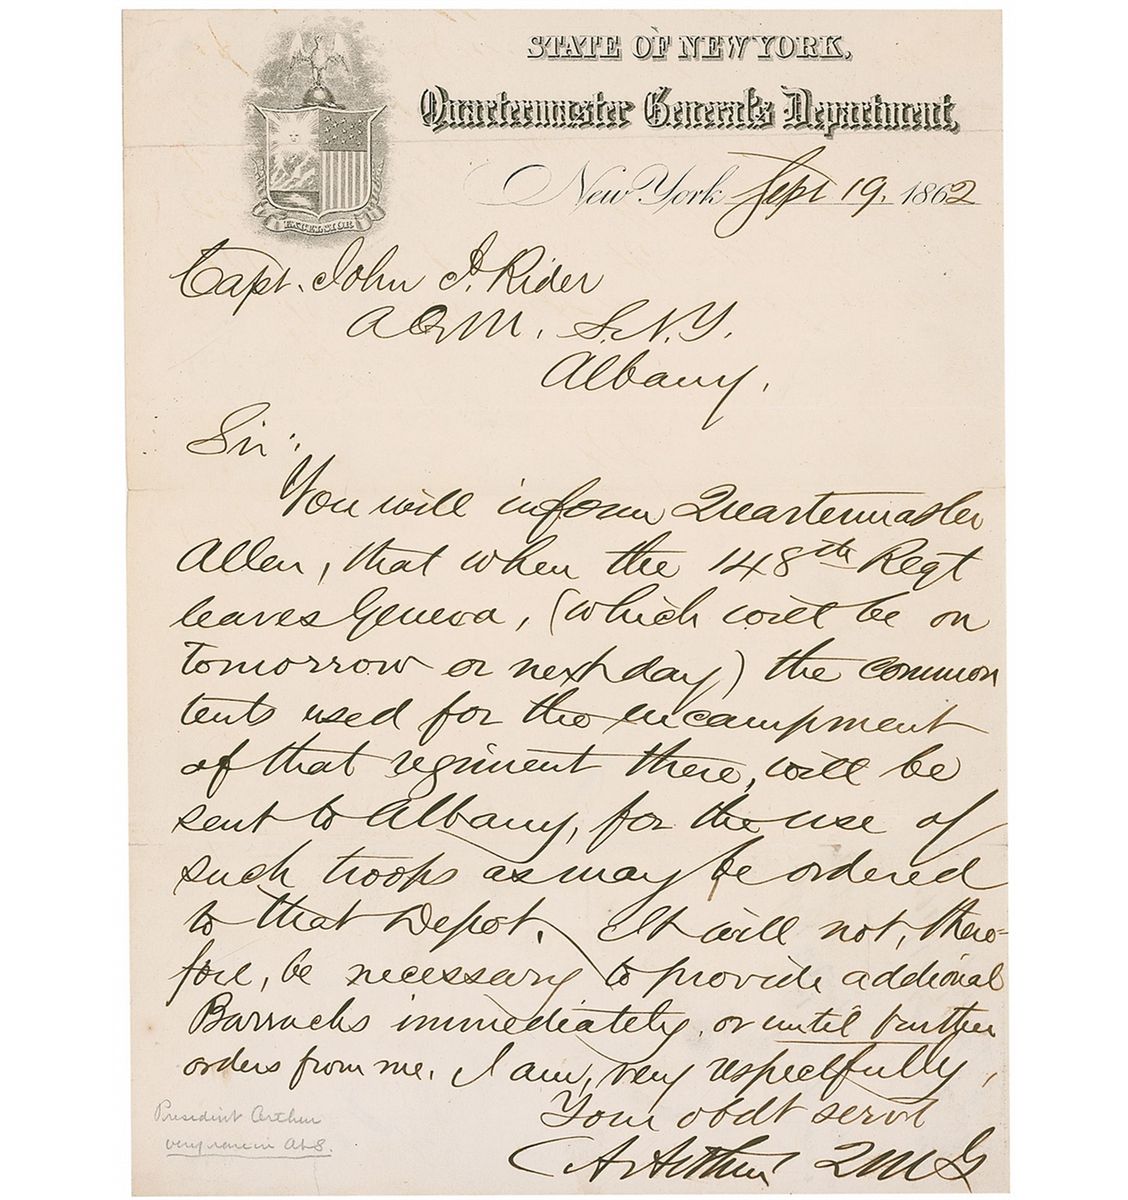 STATE OF NEW YORK,
Quartermaster General's Department,
EXCELSIOR
New York Sept 19. 1862
Capt. John I. Rider
A Q M. S. N. Y.
Albany.
Sir:
You will inform Quartermaster
Allen, that when the 148th Regt
leaves Geneva, (which will be on
tomorrow or next day) the common
tents used for the encampment
of that regiment there, will be
sent to Albany, for the use of
such troops as may be ordered
to that Depot. It will not, there-
fore, be necessary to provide addional
Barracks immediately, or until further
orders from me. I am, very respectfully,
Your obdt servt
C A Arthur QMG
President Arthur
very rare in ALS.